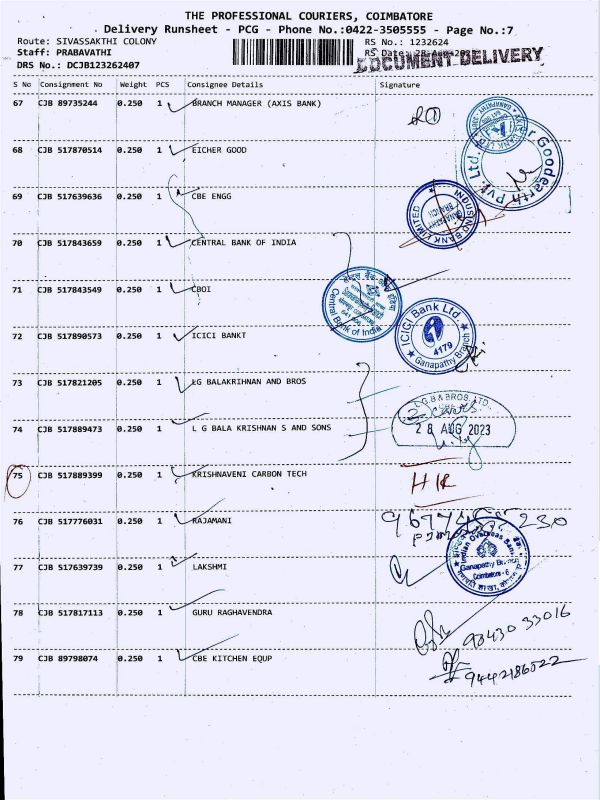 THE PROFESSIONAL COURIERS, COIMBATORE
Delivery Runsheet - PCG - Phone No.:0422-3505555 - Page No.:7
Route: SIVASSAKTHI COLONY
RS No.: 1232624
Staff: PRABAVATHI
RS Date: 28-Aug-202
DRS No.: DCJB123262407
DOCUMENT DELIVERY
S No Consignment No Weight PCS Consignee Details Signature
67 CJB 89735244 0.250 1 BRANCH MANAGER (AXIS BANK)
68 CJB 517870514 0.250 1 EICHER GOOD
Goodearth Pvt. Ltd.
69 CJB 517639636 0.250 1 CBE ENGG
INDUSIND BANK LIMITED
GANAPATHY BRANCH
70 CJB 517843659 0.250 1 CENTRAL BANK OF INDIA
71 CJB 517843549 0.250 1 CBOI
Central Bank of India
72 CJB 517890573 0.250 1 ICICI BANKT
ICICI Bank Ltd.
4179
Ganapathy Branch
73 CJB 517821205 0.250 1 LG BALAKRIHNAN AND BROS
L.G.B & BROS. LTD.
2 covers
74 CJB 517889473 0.250 1 L G BALA KRISHNAN S AND SONS
28 AUG 2023
75 CJB 517889399 0.250 1 KRISHNAVENI CARBON TECH
HK
76 CJB 517776031 0.250 1 RAJAMANI
Indian Overseas Bank
Ganapathy Branch
Coimbatore - 6
77 CJB 517639739 0.250 1 LAKSHMI
78 CJB 517817113 0.250 1 GURU RAGHAVENDRA
98430 33016
79 CJB 89798074 0.250 1 CBE KITCHEN EQUP
9442186522